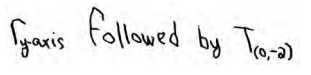 r y-axis followed by T(0,-2)